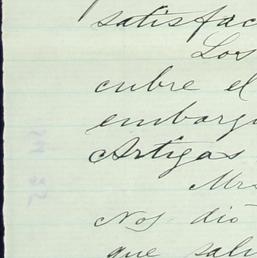 satisfac
Los
cubre el
embarg
Artigas
Mr
Nos dió
que sal